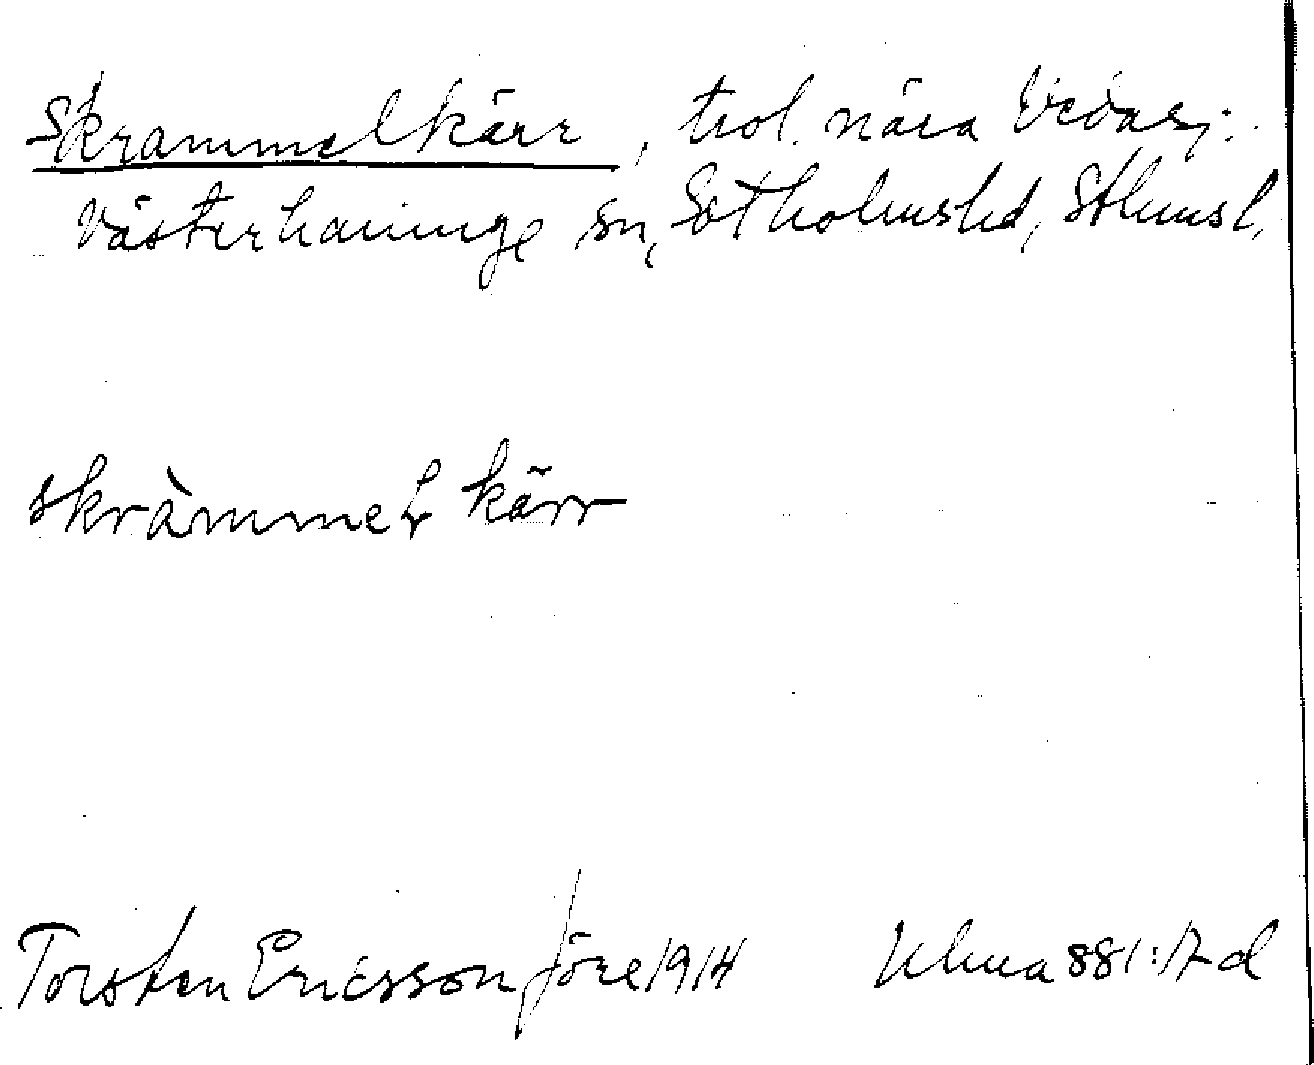 Skrammelkärr, trol. nära
Västerhaninge sn, Sotholms hd, Sthms l.
skràmmel kärr
Torsten Ericsson före 1914 Ulma 881:17 d